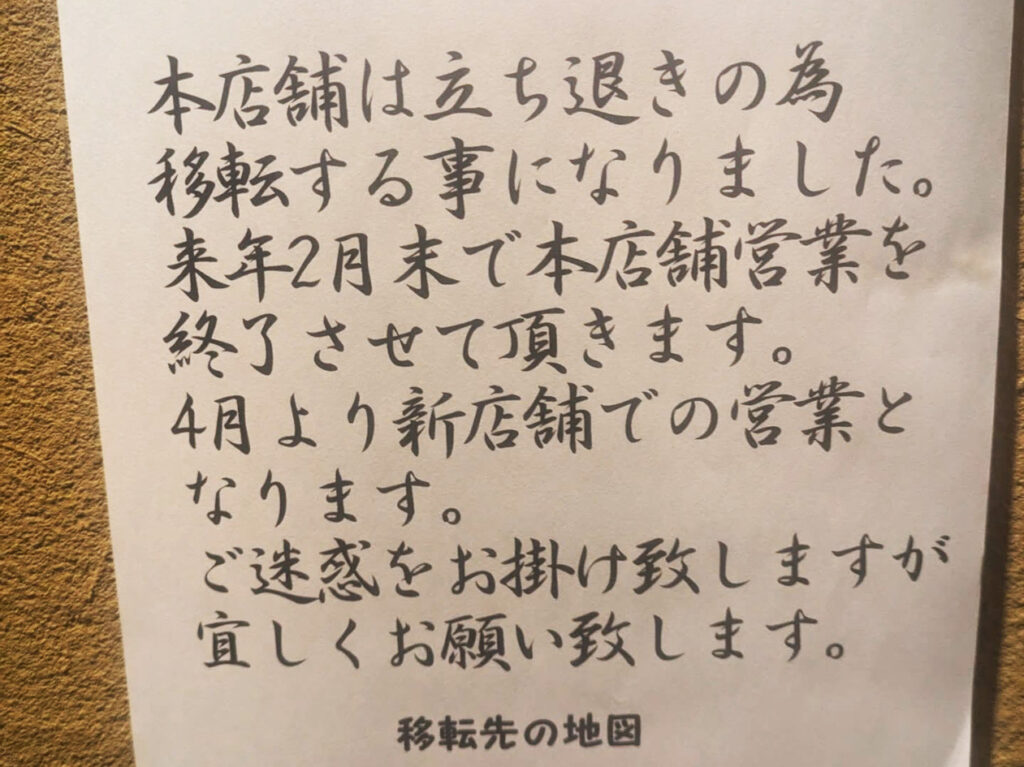 本店舗は立ち退きの為
移転する事になりました。
来年2月末で本店舗営業を
終了させて頂きます。
4月より新店舗での営業と
なります。
ご迷惑をお掛け致しますが
宜しくお願い致します。
移転先の地図